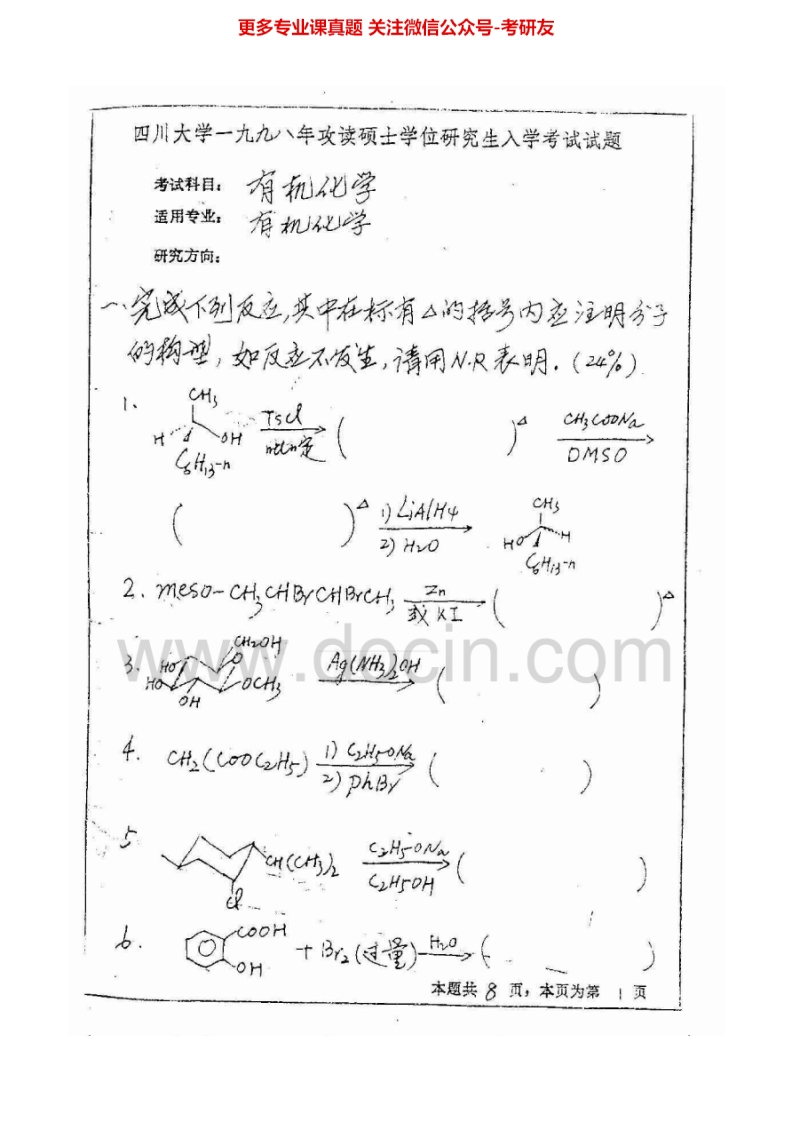 更多专业课真题 关注微信公众号-考研友
四川大学一九九八年攻读硕士学位研究生入学考试试题
考试科目: 有机化学
适用专业: 有机化学
研究方向:
一、完成下列反应,其中在标有△的括号内应注明分子
的构型,如反应不发生,请用N.R表明.(24%)
1. CH3 H OH C6H13-n TsCl 吡啶 ( )△ CH3COONa DMSO
( )△ 1) LiAlH4 2) H2O CH3 HO H C6H13-n
2. meso-CH3CHBrCHBrCH3 Zn 或 KI ( )△
www.docin.com
3. HO HO OH CH2OH O OCH3 Ag(NH3)2OH ( )
4. CH2(COOC2H5) 1) C2H5ONa 2) PhBr ( )
5 CH(CH3)2 Cl C2H5ONa C2H5OH ( )
6. COOH OH + Br2(过量) H2O ( )
本题共 8 页,本页为第 1 页